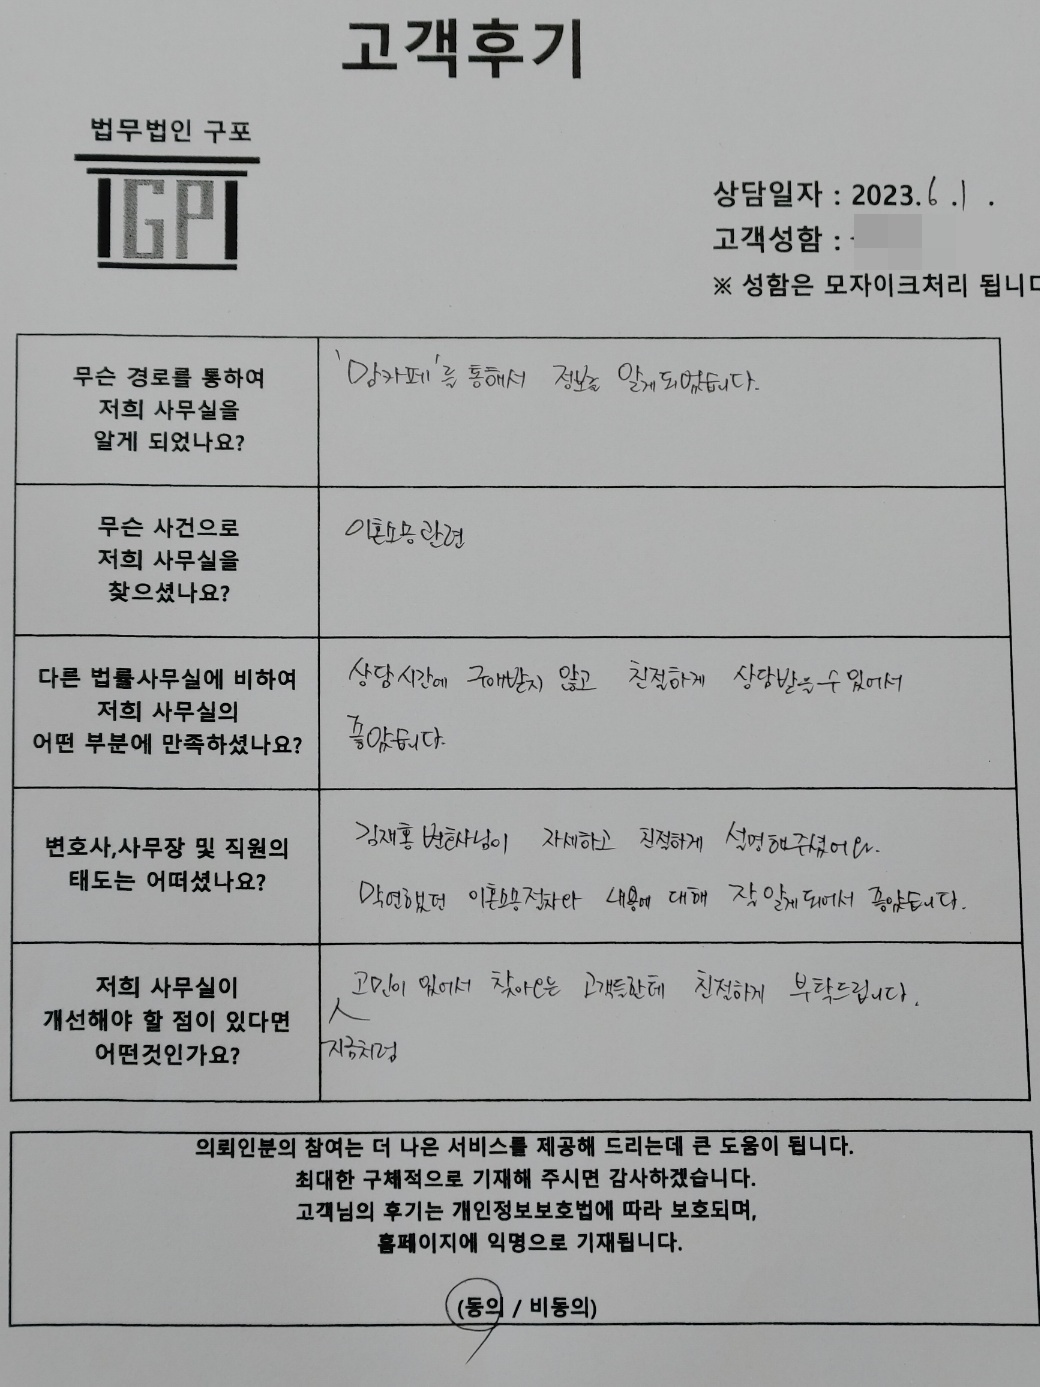 고객후기
법무법인 구포
GP
상담일자 : 2023.6.1.
고객성함 :
※ 성함은 모자이크처리 됩니다
무슨 경로를 통하여
저희 사무실을
알게 되었나요?
'맘카페'를 통해서 정보를 알게되었습니다.
무슨 사건으로
저희 사무실을
찾으셨나요?
이혼소송관련
다른 법률사무실에 비하여
저희 사무실의
어떤 부분에 만족하셨나요?
상담시간에 구애받지 않고 친절하게 상담받을수있어서
좋았습니다.
변호사,사무장 및 직원의
태도는 어떠셨나요?
김재홍 변호사님이 자세하고 친절하게 설명해주셨어요.
막연했던 이혼소송절차와 내용에 대해 잘 알게되어서 좋았습니다.
저희 사무실이
개선해야 할 점이 있다면
어떤것인가요?
고민이 있어서 찾아오는 고객들한테 친절하게 부탁드립니다.
지금처럼
의뢰인분의 참여는 더 나은 서비스를 제공해 드리는데 큰 도움이 됩니다.
최대한 구체적으로 기재해 주시면 감사하겠습니다.
고객님의 후기는 개인정보보호법에 따라 보호되며,
홈페이지에 익명으로 기재됩니다.
(동의 / 비동의)